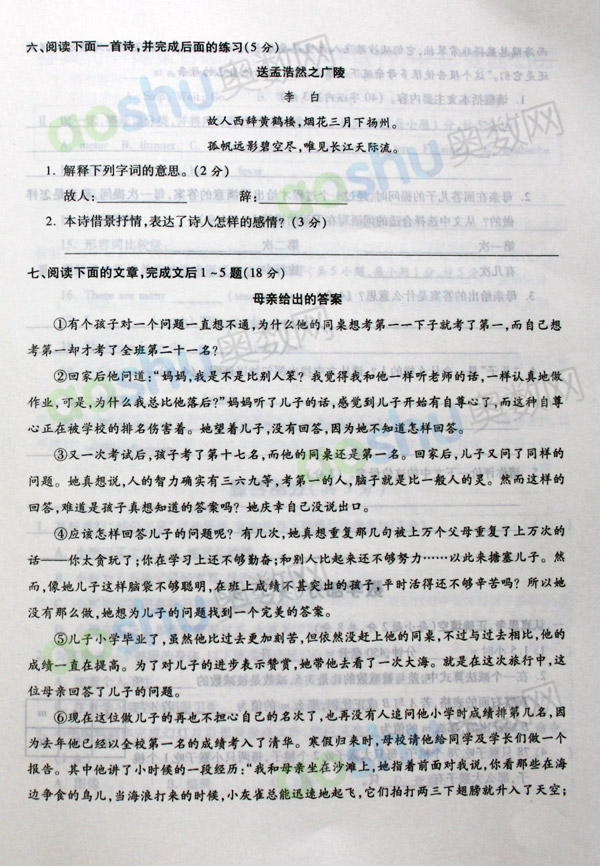 六、阅读下面一首诗,并完成后面的练习(5分)
送孟浩然之广陵
李 白
故人西辞黄鹤楼,烟花三月下扬州。
孤帆远影碧空尽,唯见长江天际流。
1. 解释下列字词的意思。(2分)
故人: 辞:
2. 本诗借景抒情,表达了诗人怎样的感情? (3分)
七、阅读下面的文章,完成文后1~5题(18分)
母亲给出的答案
①有个孩子对一个问题一直想不通,为什么他的同桌想考第一一下子就考了第一,而自己想
考第一却才考了全班第二十一名?
②回家后他问道:“妈妈,我是不是比别人笨? 我觉得我和他一样听老师的话,一样认真地做
作业,可是,为什么我总比他落后?”妈妈听了儿子的话,感觉到儿子开始有自尊心了,而这种自尊
心正在被学校的排名伤害着。她望着儿子,没有回答,因为她不知道怎样回答。
③又一次考试后,孩子考了第十七名,而他的同桌还是第一名。回家后,儿子又问了同样的
问题。她真想说,人的智力确实有三六九等,考第一的人,脑子就是比一般人的灵。然而这样的
回答,难道是孩子真想知道的答案吗? 她庆幸自己没说出口。
④应该怎样回答儿子的问题呢? 有几次,她真想重复那几句被上万个父母重复了上万次的
话——你太贪玩了;你在学习上还不够勤奋;和别人比起来还不够努力……以此来搪塞儿子。然
而,像她儿子这样脑袋不够聪明,在班上成绩不甚突出的孩子,平时活得还不够辛苦吗? 所以她
没有那么做,她想为儿子的问题找到一个完美的答案。
⑤儿子小学毕业了,虽然他比过去更加刻苦,但依然没赶上他的同桌,不过与过去相比,他的
成绩一直在提高。为了对儿子的进步表示赞赏,她带他去看了一次大海。就是在这次旅行中,这
位母亲回答了儿子的问题。
⑥现在这位做儿子的再也不担心自己的名次了,也再没有人追问他小学时成绩排第几名,因
为去年他已经以全校第一名的成绩考入了清华。寒假归来时,母校请他给同学及学长们做一个
报告。其中他讲了小时候的一段经历:“我和母亲坐在沙滩上,她指着前面对我说,你看那些在海
边争食的鸟儿,当海浪打来的时候,小灰雀总能迅速地起飞,它们拍打两三下翅膀就升入了天空;
aoshu奥数网
aoshu奥数网
aoshu奥数网
aoshu奥数网